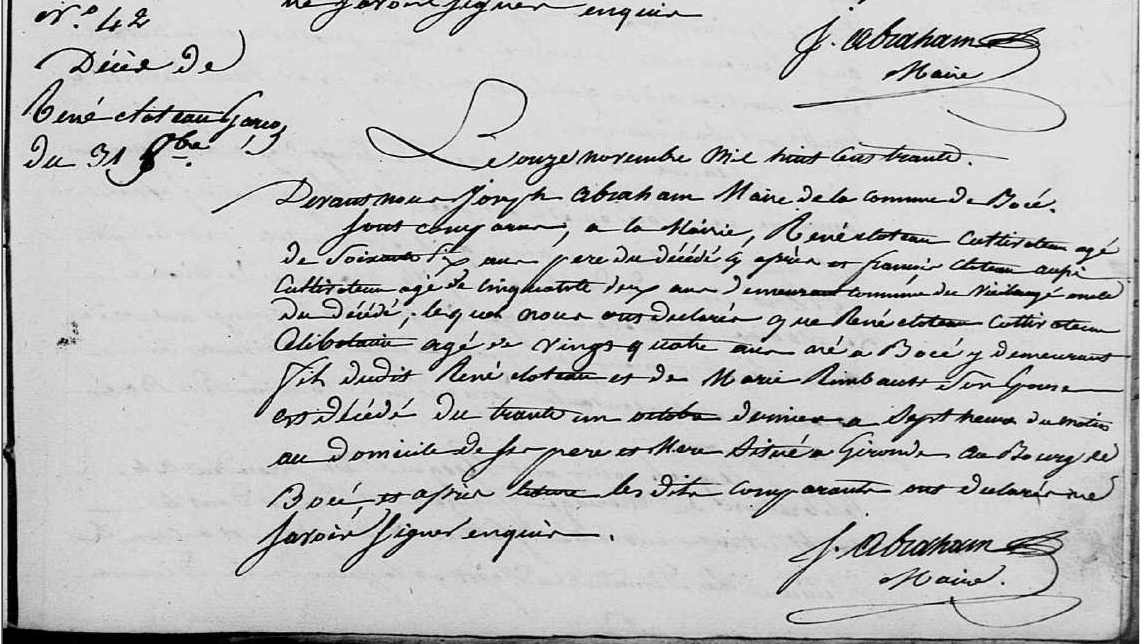 ne Savoir Signer enquis
J. Abraham
Maire
N.º 42
Décès de
René cloteau Garçon
du 31 8bre.
Le onze novembre Mil huit Cens trante.
Devant nous Joseph Abraham Maire de la Commune de Bocé.
Sont comparus, a la Mairie, René cloteau Cultivateur agé
de Soixante Six ans pere du décédé cy après et françois cloteau aussi
Cultivateur agé de Cinquante deux ans demeurant commune du Vieilbaugé oncle
du décédé, lequel nous ont declarés que René cloteau Cultivateur
Célibataire agé de vingt quatre ans né a Bocé y demeurant
fils dudit René cloteau et de Marie Rimbault Son Epouse
est décédé du trante un octobre dernier a Sept heures du matin
au domicile de Ses pere et Mere Situé a Gironde au Bourg de
Bocé, et après lecture les dits Comparants ont declarés ne
Savoir Signer enquis.
J. Abraham
Maire.